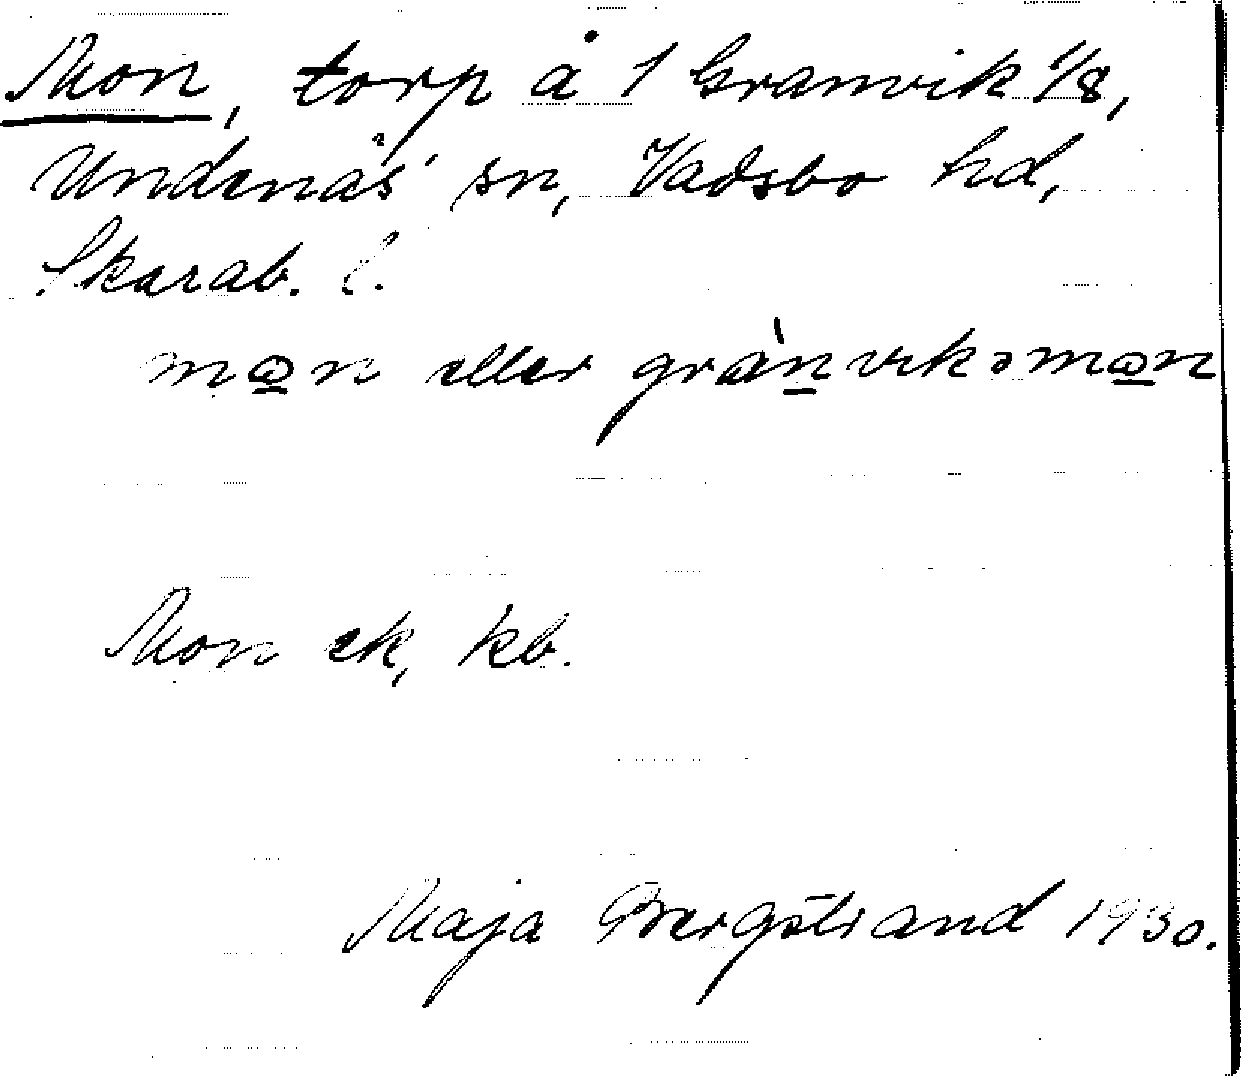 Mon, torp å 1 Granvik 1/8,
Undenäs sn, Vadsbo hd,
Skarab. l.
mon eller grànvikəmon
Mon ek, kb.
Maja Bergstrand 1930.